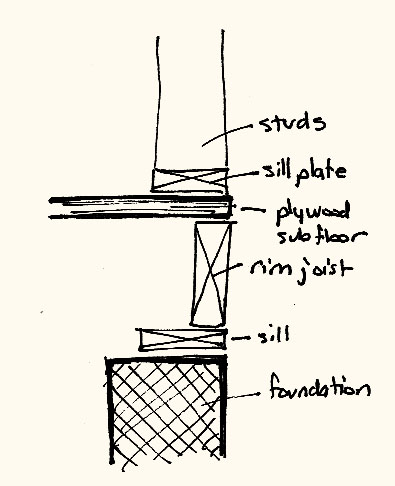 studs
sill plate
plywood
subfloor
rim joist
sill
foundation